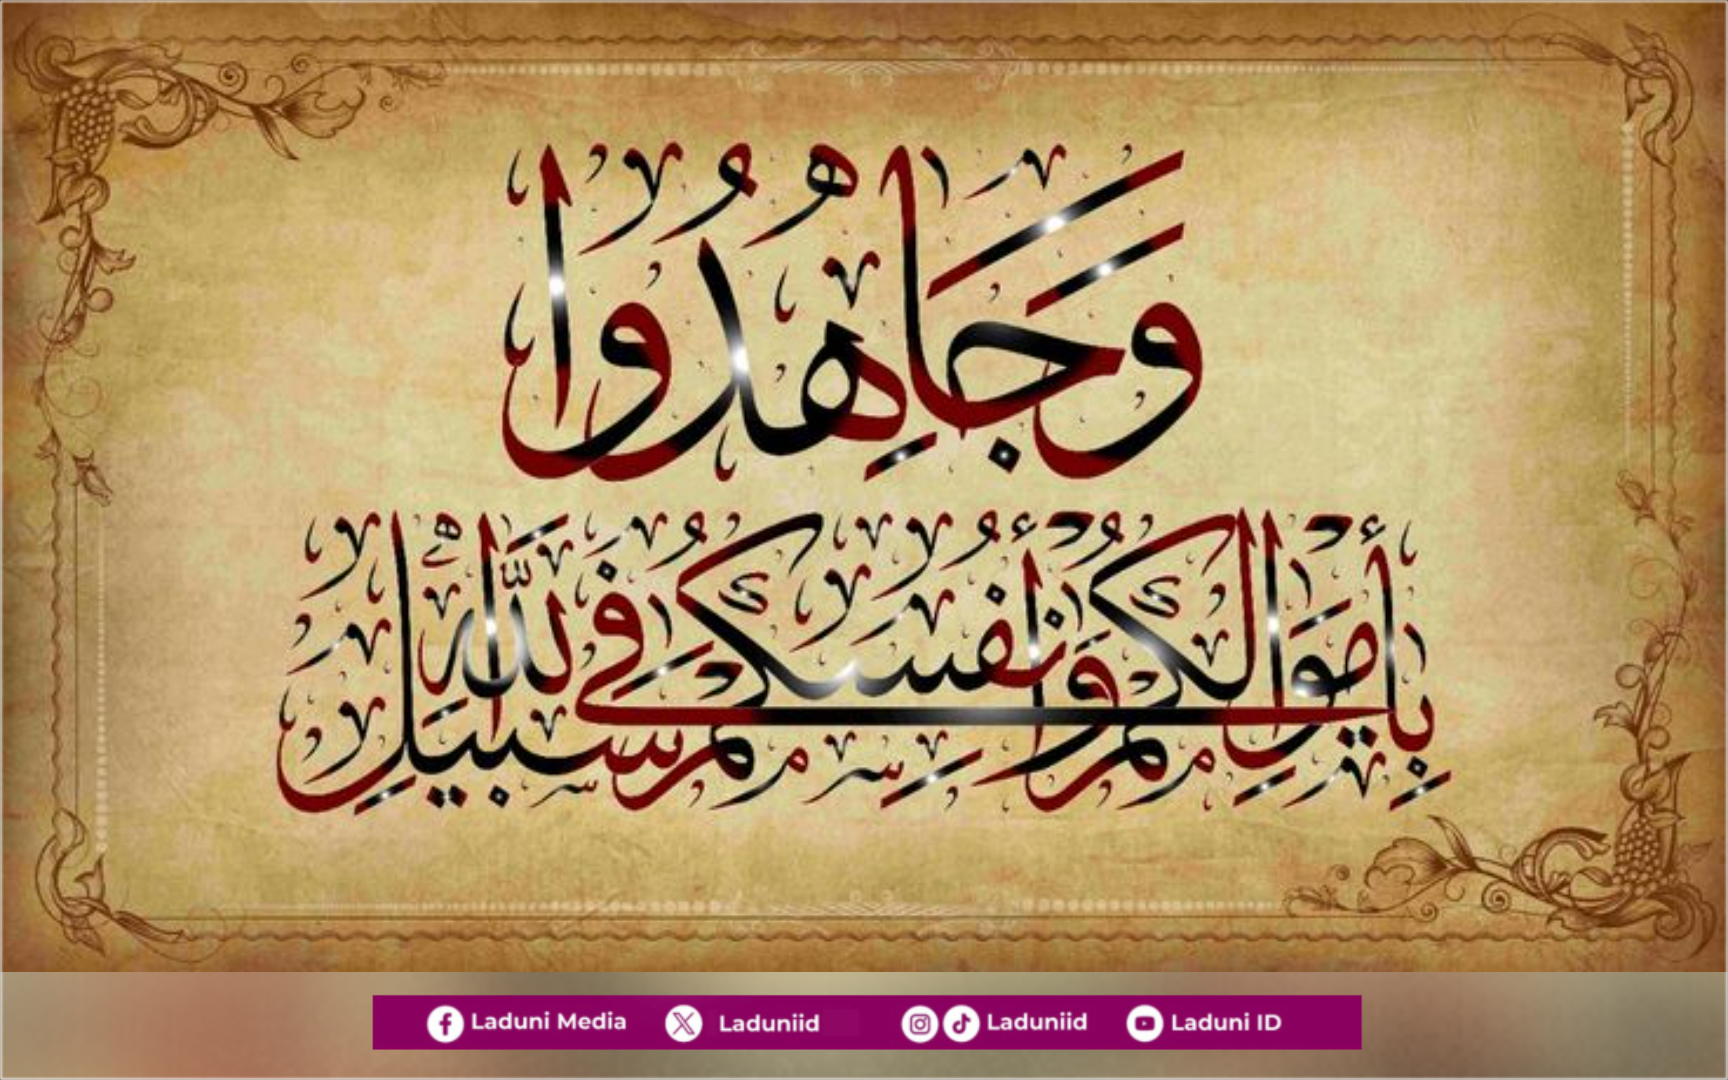 وَجَاهِدُوا
بِأَمْوَالِكُمْ وَأَنفُسِكُمْ فِي سَبِيلِ اللَّهِ
Laduni Media Laduniid Laduniid Laduni ID